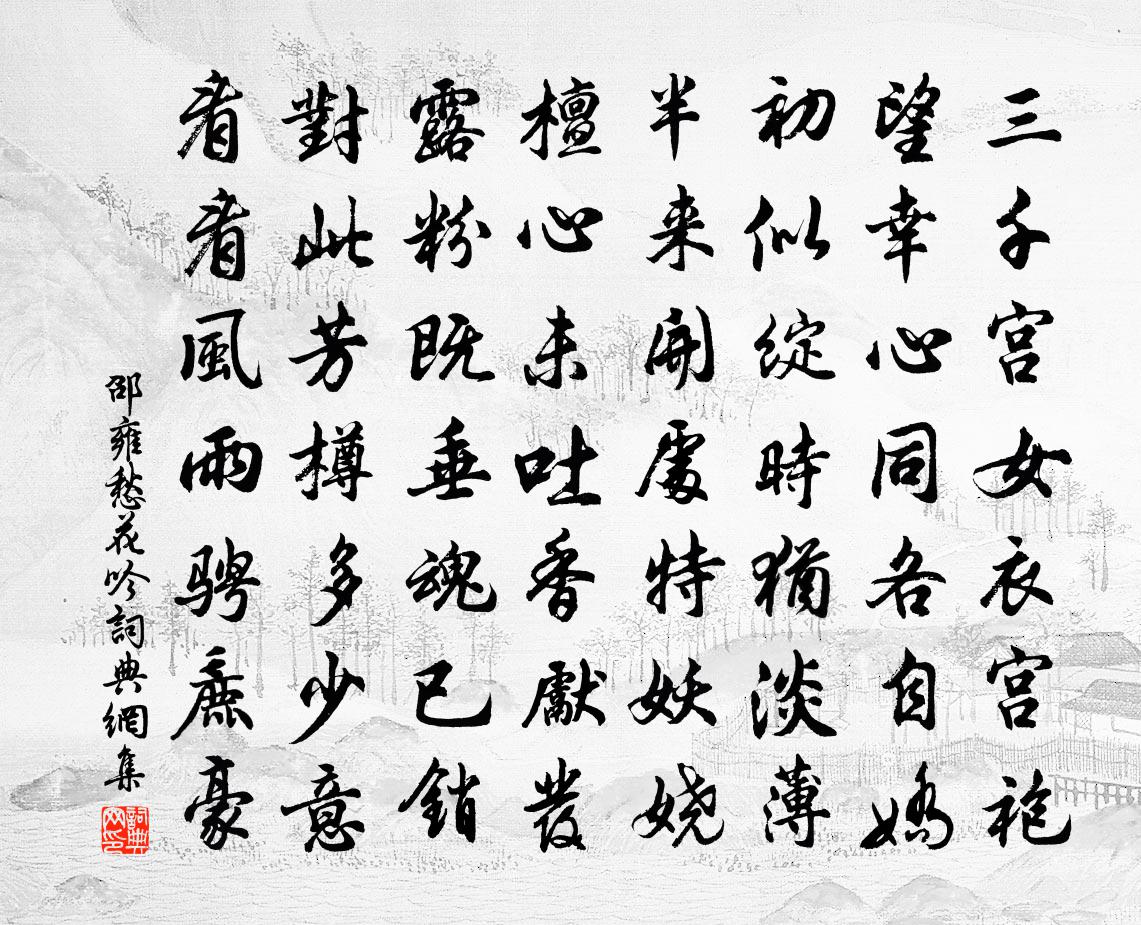 三千宫女衣宫袍
望幸心同各自嬌
初似綻時猶淡薄
半来開處特妖娆
檀心未吐香獻發
露粉既垂魂已銷
對此芳樽多少意
看看風雨骋麁豪
邵雍愁花吟詞典網集
詞典网印